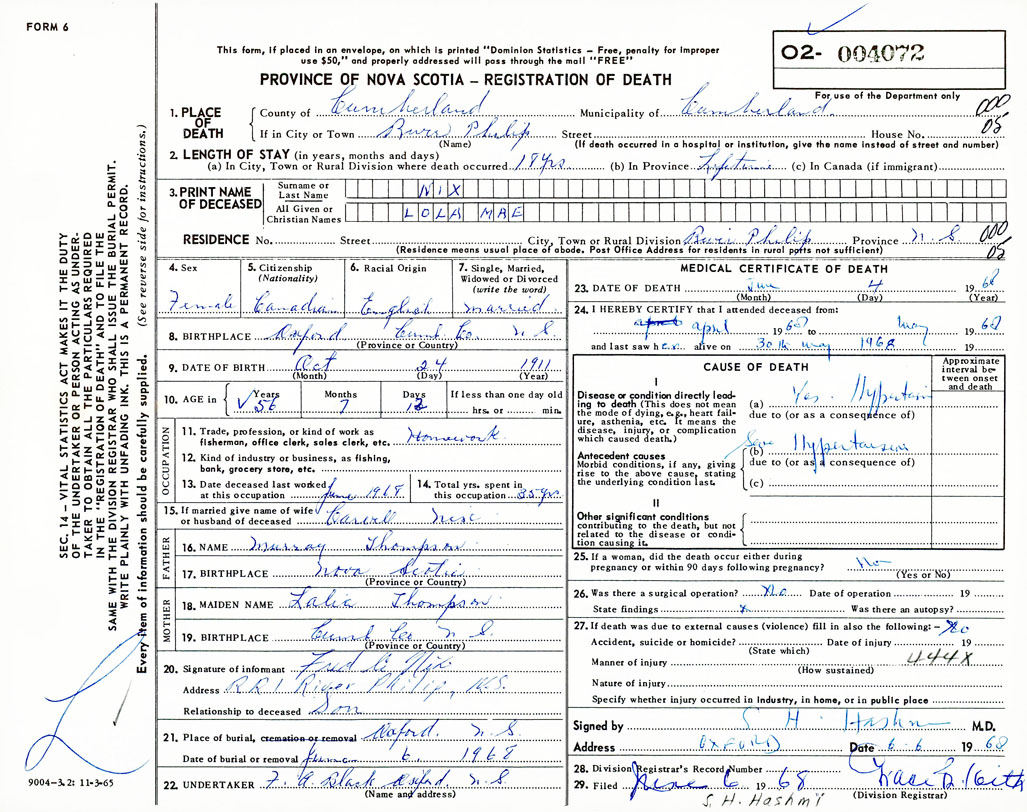 FORM 6
This form, if placed in an envelope, on which is printed "Dominion Statistics – Free, penalty for improper
use $50," and properly addressed will pass through the mail "FREE"
O2- 004072
PROVINCE OF NOVA SCOTIA – REGISTRATION OF DEATH
For use of the Department only
1. PLACE OF DEATH
County of Cumberland Municipality of Cumberland 000
If in City or Town River Philip Street House No. 05
(Name) (If death occurred in a hospital or institution, give the name instead of street and number)
2. LENGTH OF STAY (in years, months and days)
(a) In City, Town or Rural Division where death occurred 18 yrs. (b) In Province Lifetime (c) In Canada (if immigrant)
3. PRINT NAME OF DECEASED
Surname or Last Name NIX
All Given or Christian Names LOLA MAE
RESIDENCE No. Street City, Town or Rural Division River Philip Province N. S. 000
05
(Residence means usual place of abode. Post Office Address for residents in rural parts not sufficient)
4. Sex Female
5. Citizenship (Nationality) Canadian
6. Racial Origin English
7. Single, Married, Widowed or Divorced (write the word) Married
8. BIRTHPLACE Oxford Cumb. Co. N S
(Province or Country)
9. DATE OF BIRTH Oct 24 1911
(Month) (Day) (Year)
10. AGE in Years 56 Months 7 Days If less than one day old hrs. or min.
OCCUPATION
11. Trade, profession, or kind of work as fisherman, office clerk, sales clerk, etc. Homework.
12. Kind of industry or business, as fishing, bank, grocery store, etc.
13. Date deceased last worked at this occupation June 1968
14. Total yrs. spent in this occupation 35 yrs.
15. If married give name of wife or husband of deceased
FATHER
16. NAME Murray Thompson
17. BIRTHPLACE Nova Scotia
(Province or Country)
MOTHER
18. MAIDEN NAME Thompson
19. BIRTHPLACE Cumb Co N. S.
(Province or Country)
20. Signature of informant Fred Nix
Address RR1 River Philip, N.S.
Relationship to deceased Son
21. Place of burial, cremation or removal Oxford. N. S
Date of burial or removal June 6, 1968
22. UNDERTAKER F. A Black Oxford N S
(Name and address)
MEDICAL CERTIFICATE OF DEATH
23. DATE OF DEATH June 4 1968
(Month) (Day) (Year)
24. I HEREBY CERTIFY that I attended deceased from:
april 1968 to May 1968
and last saw her alive on 30th May 1968 19
CAUSE OF DEATH
Approximate interval between onset and death
I
Disease or condition directly leading to death (This does not mean the mode of dying, e.g., heart failure, asthenia, etc. It means the disease, injury, or complication which caused death.)
(a)
due to (or as a consequence of)
Antecedent causes
Morbid conditions, if any, giving rise to the above cause, stating the underlying condition last.
(b) Hypertension
due to (or as a consequence of)
(c)
II
Other significant conditions contributing to the death, but not related to the disease or condition causing it.
25. If a woman, did the death occur either during pregnancy or within 90 days following pregnancy? No
(Yes or No)
26. Was there a surgical operation? No Date of operation 19
State findings x Was there an autopsy?
27. If death was due to external causes (violence) fill in also the following: – No
Accident, suicide or homicide? Date of injury 19
(State which)
Manner of injury 444X
(How sustained)
Nature of injury
Specify whether injury occurred in Industry, in home, or in public place
Signed by S H. Hashmi M.D.
Address OXFORD Date 6.6 1968
28. Division Registrar's Record Number
29. Filed June 6 1968
(Division Registrar)
S. H. Hashmi
SEC. 14 – VITAL STATISTICS ACT MAKES IT THE DUTY
OF THE UNDERTAKER OR PERSON ACTING AS UNDER-
TAKER TO OBTAIN ALL THE PARTICULARS REQUIRED
IN THE "REGISTRATION OF DEATH" AND TO FILE THE
SAME WITH THE DIVISION REGISTRAR WHO SHALL ISSUE THE BURIAL PERMIT.
WRITE PLAINLY WITH UNFADING INK. THIS IS A PERMANENT RECORD.
Every item of information should be carefully supplied. (See reverse side for instructions.)
9004-3.2: 11-3-65